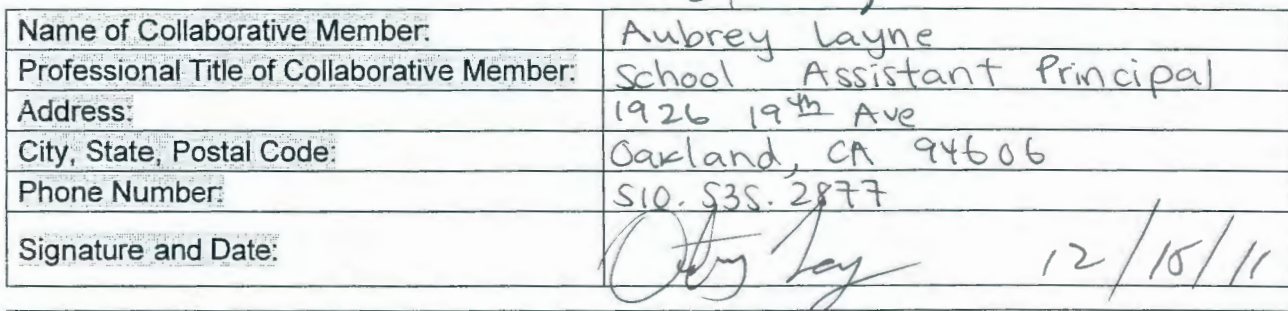 Name of Collaborative Member: Aubrey Layne
Professional Title of Collaborative Member: School Assistant Principal
Address: 1926 19th Ave
City, State, Postal Code: Oakland, CA 94606
Phone Number: 510.535.2877
Signature and Date: 12/15/11